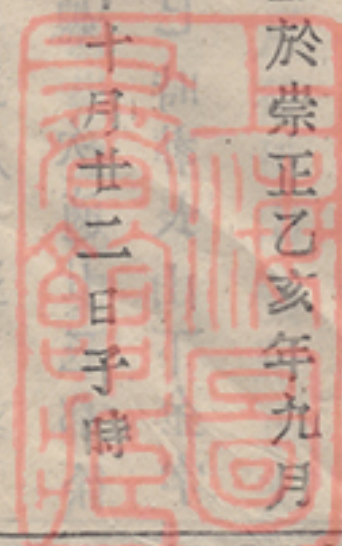 於崇正乙亥年九月
十月廿二日子時